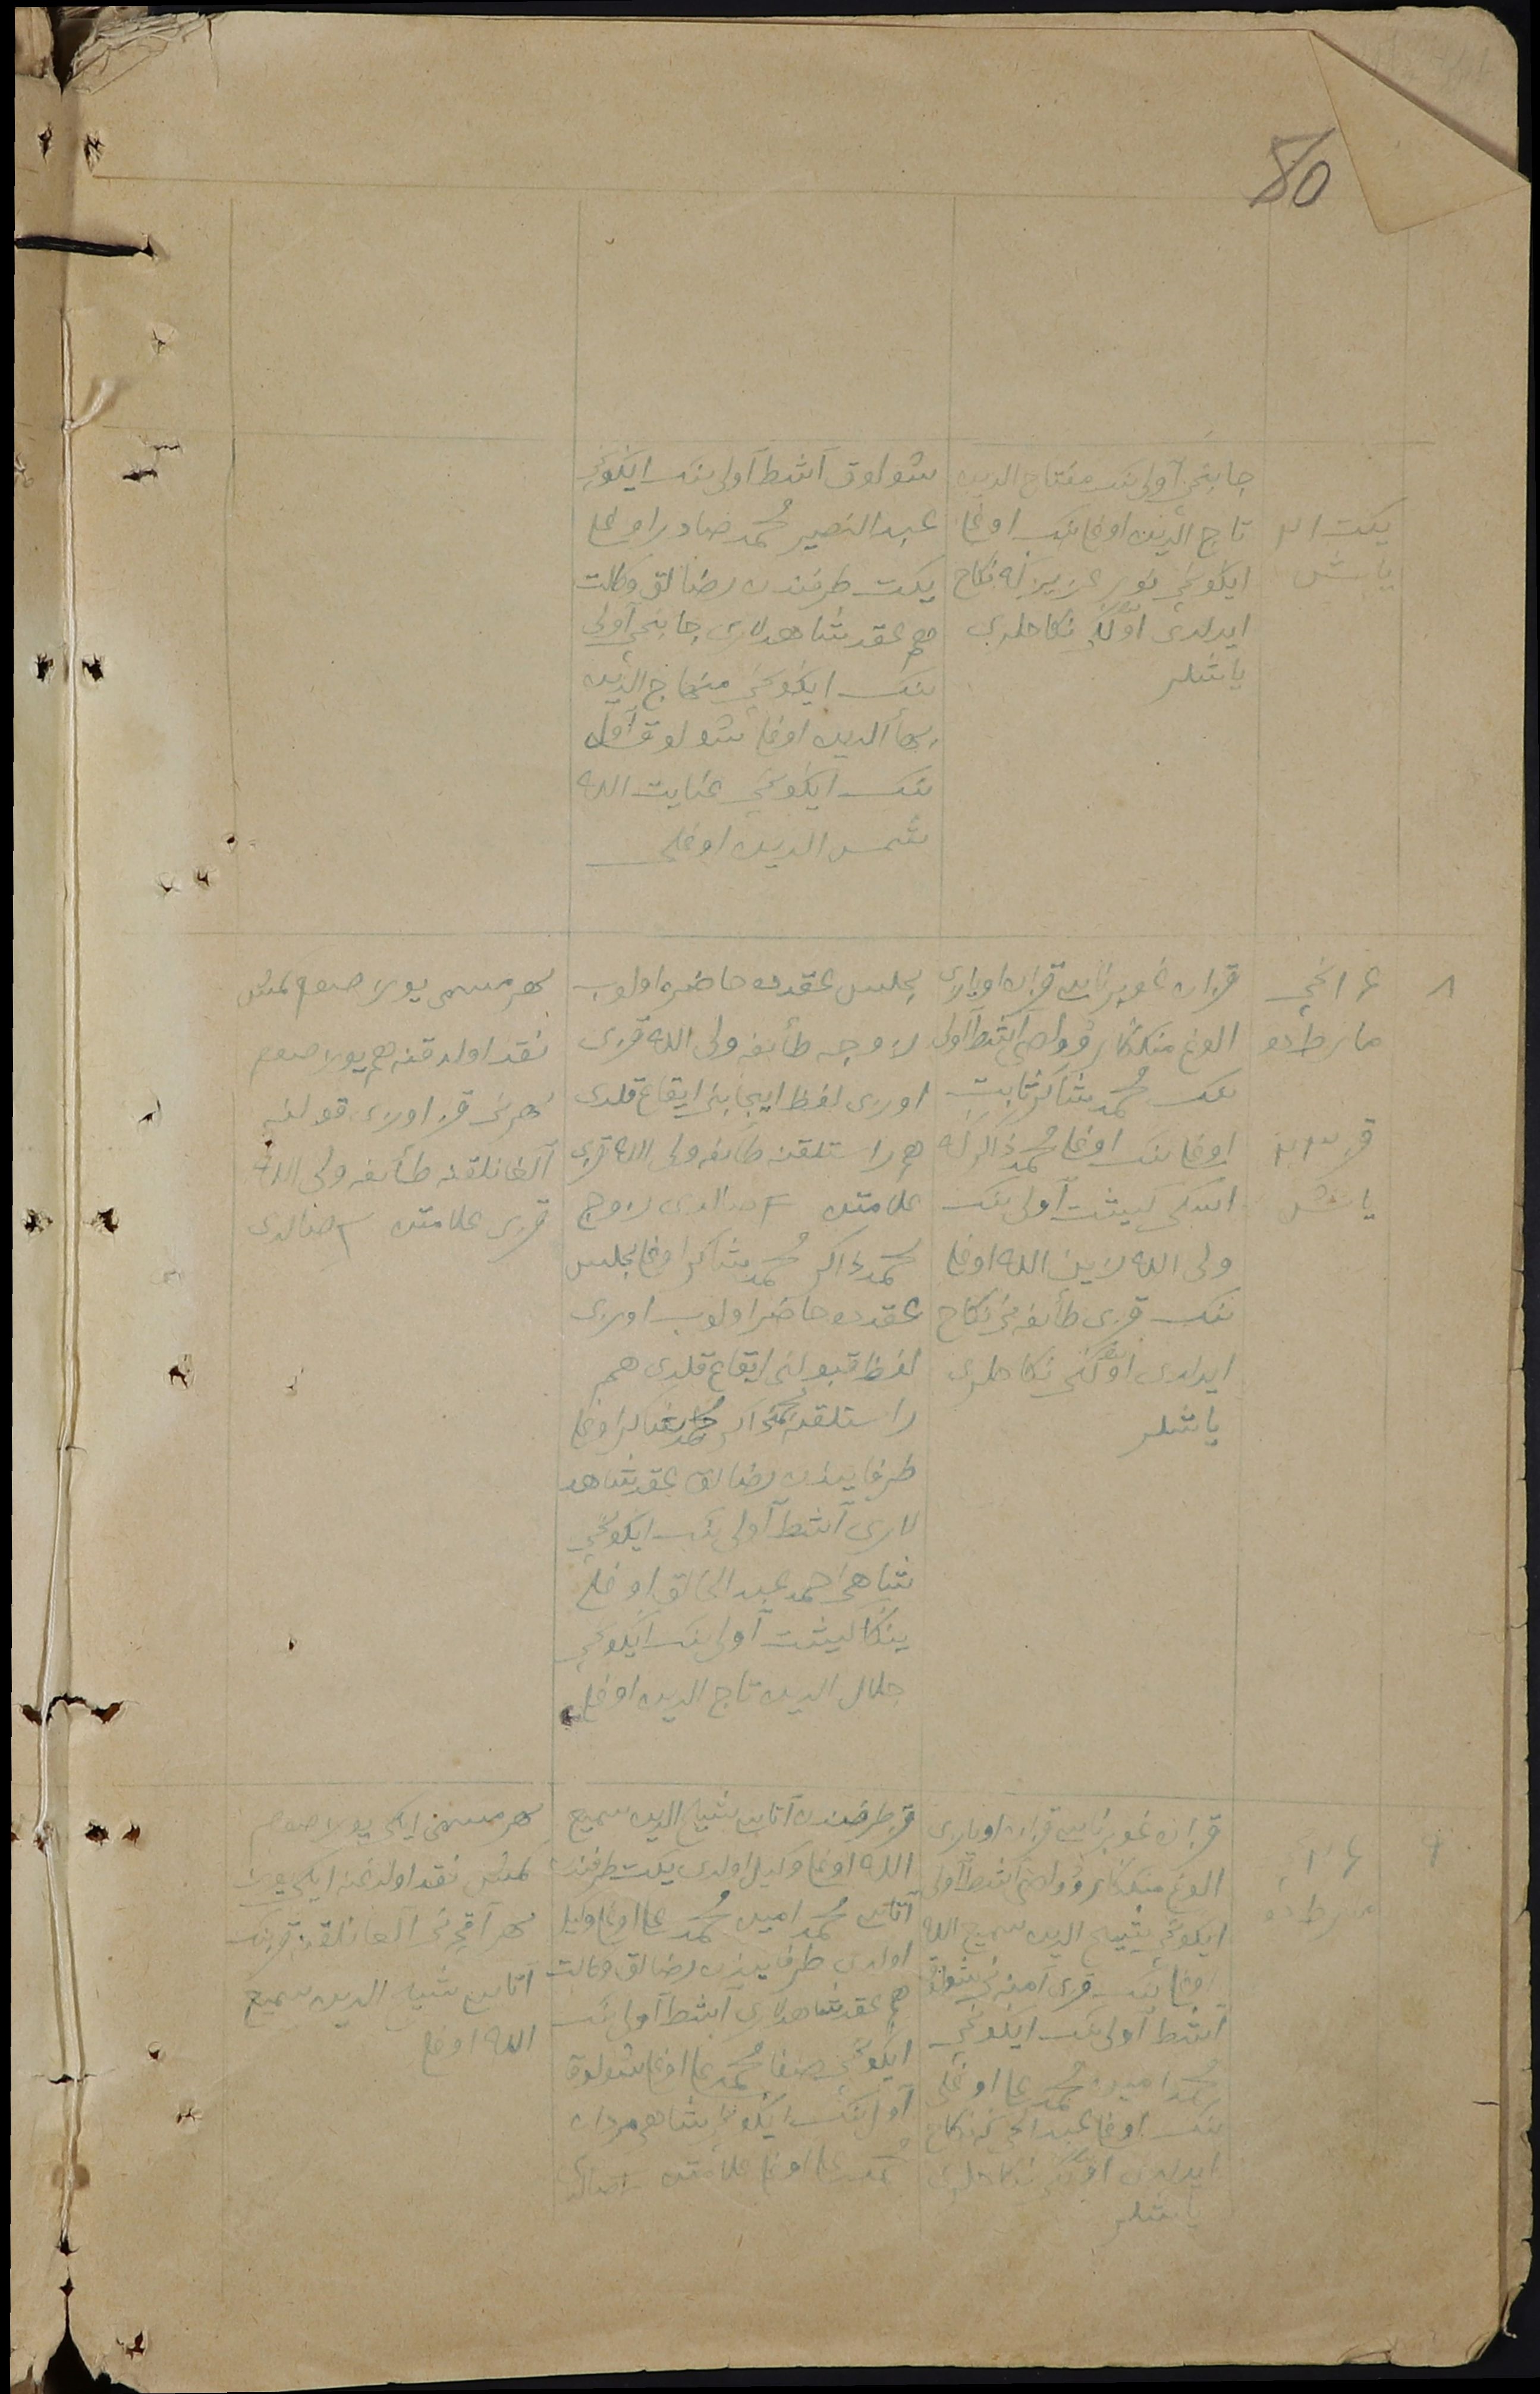 80
یکت ۱۸
یاش
جابنچی آولی ننک مفتاح الدین
تاج الدین اوغلی ننک اوغلی
ایکونچی نور عزیزگه نکاح
ایدلدی اولگی نکاحلری
یاشلر
شولوق آشط آولی ننک ایکونچی
عبد النصیر محمد صادر اوغلی
یکت طرفندن رضالق وکالت
هم عقد شاهدلاری جابنچی آولی
ننک ایکونچی منهاج الدین
بهاء الدین اوغلی شولوق آول
ننک ایکونچی عنایت الله
شمس الدین اوغلی
۸
۴ انچی
مارطده
قز
یاش
قزان غوبرناسی قزان اویازی
الوغ منککار وولصی آشط آولی
ننک محمد شاکر ثابت
اوغلی ننک اوغلی محمد ذاکرگه
اسکی کیشت آولی ننک
ولی الله زین الله اوغلی
ننک قزی طائفه نی نکاح
ایدلدی اولگی نکاحلری
یاشلر
مجلس عقدده حاضره اولوب
زوجه طائفه ولی الله قزی
اوزی لفظ ایجابنی ایقاع قلدی
هم راستلقنه طائفه ولی الله قزی
علامتن صالدی زوج
محمد ذاکر محمد شاکر اوغلی مجلس
عقدده حاضر اولوب اوزی
لفظ قبولنی ایقاع قلدی هم
راستلقنه محمد ذاکر محمد شاکر اوغلی
طرفایندن رضالق عقد شاهد
لاری آشط آولی ننک ایکونچی
شاهی احمد عبد الخالق اوغلی
ینکا کیشت آولی ننک ایکونچی
جلال الدین تاج الدین اوغلی
مهر مسمی یوز صوم تمش
نقد اولدقنه هم یوز صوم
مهرنی قز اوزی قولنه
آلغانلقنه طائفه ولی الله
قزی علامتن صالدی
۹
۴ انچی
مارطده
قزان غوبرناسی قزان اویازی
الوغ منککار وولصی آشط آولی
ایکونچی شیخ الدین سمیع الله
اوغلی ننک قزی آمنه نی شولوق
آشط آولی ننک ایکونچی
محمد امین محمد علی اوغلی
ننک اوغلی عبد الحی گه نکاح
ایدلدی اولگی نکاحلری
یاشلر
قز طرفندن آتاسی شیخ الدین سمیع
الله اوغلی وکیل اولدی یکت طرفندن
آتاسی محمد امین محمد علی اوغلی وکیل
اولدی طرفایندن رضالق وکالت
هم عقد شاهدلاری آشط آولی ننک
ایکونچی صفا محمد علی اوغلی شولوق
آول ننک ایکونچی شاهی مردان
محمد علی اوغلی علامتن صالدی
مهر مسمی ایکی یوز صوم
تمش نقد اولدغنه ایکی یوز
مهر آقچه نی آلغانلقنه قز ننک
آتاسی شیخ الدین سمیع
الله اوغلی